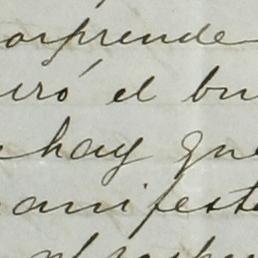 orprende
iró el bu
hay que
anifest